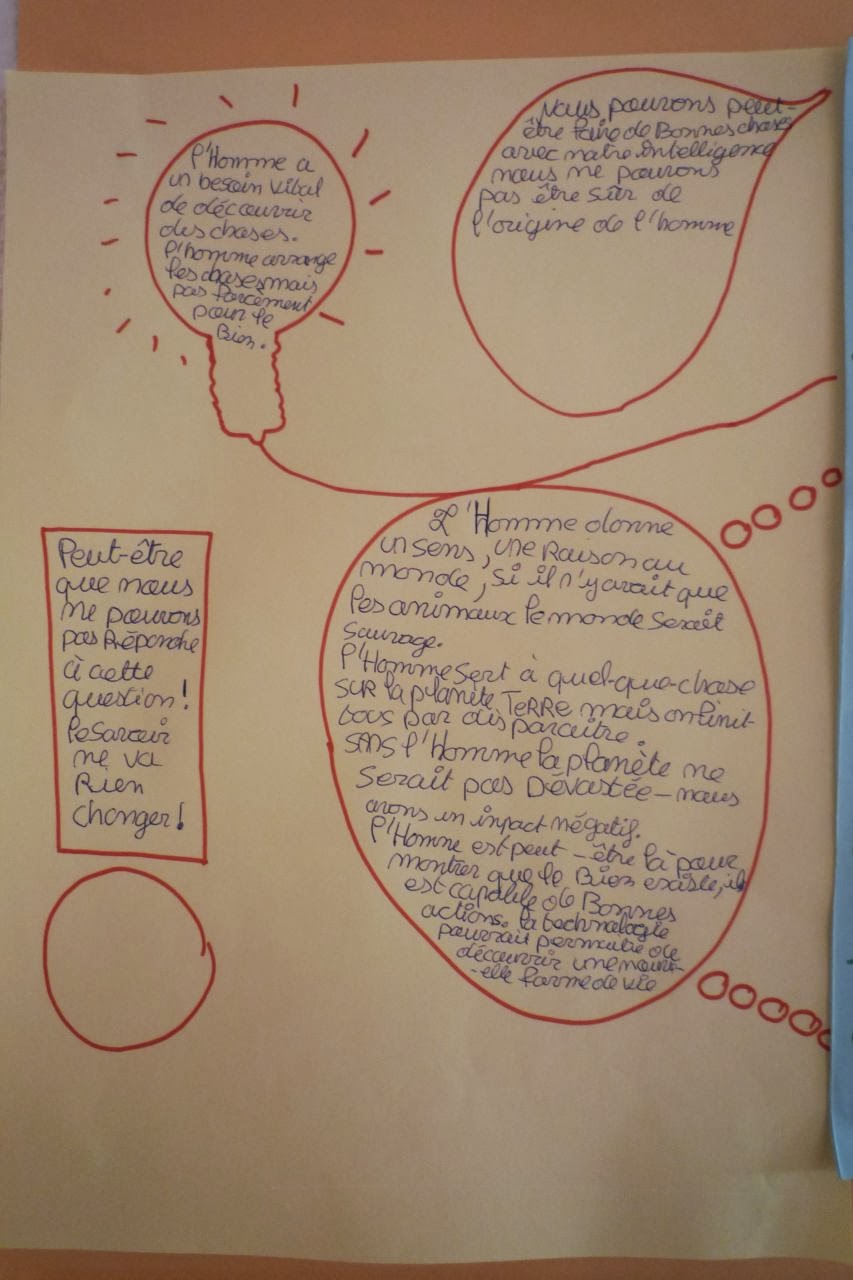 l'Homme a
un besoin vital
de découvrir
des choses.
l'homme arrange
les choses mais
pas forcèment
pour le
Bien.
Nous pouvons peut-
être faire de Bonnes choses
avec notre intelligence
nous ne pouvons
pas être sûr de
l'origine de l'homme
Peut-être
que nous
ne pouvons
pas Répondre
à cette
question!
le savoir
ne va
Rien
changer!
L'Homme donne
un sens, une Raison au
monde, si il n'y avait que
les animaux le monde serait
sauvage.
l'Homme sert à quel-que-chose
SUR la planète TeRRe mais on finit
tous par disparaître.
SANS l'Homme la planète ne
serait pas Dévastée - nous
avons un inpact négatif.
l'Homme est peut-être là pour
montrer que le Bien existe, il
est capable de Bonnes
actions. la technologie
pourrait permettre de
découvrir une nouv-
-elle forme de vie